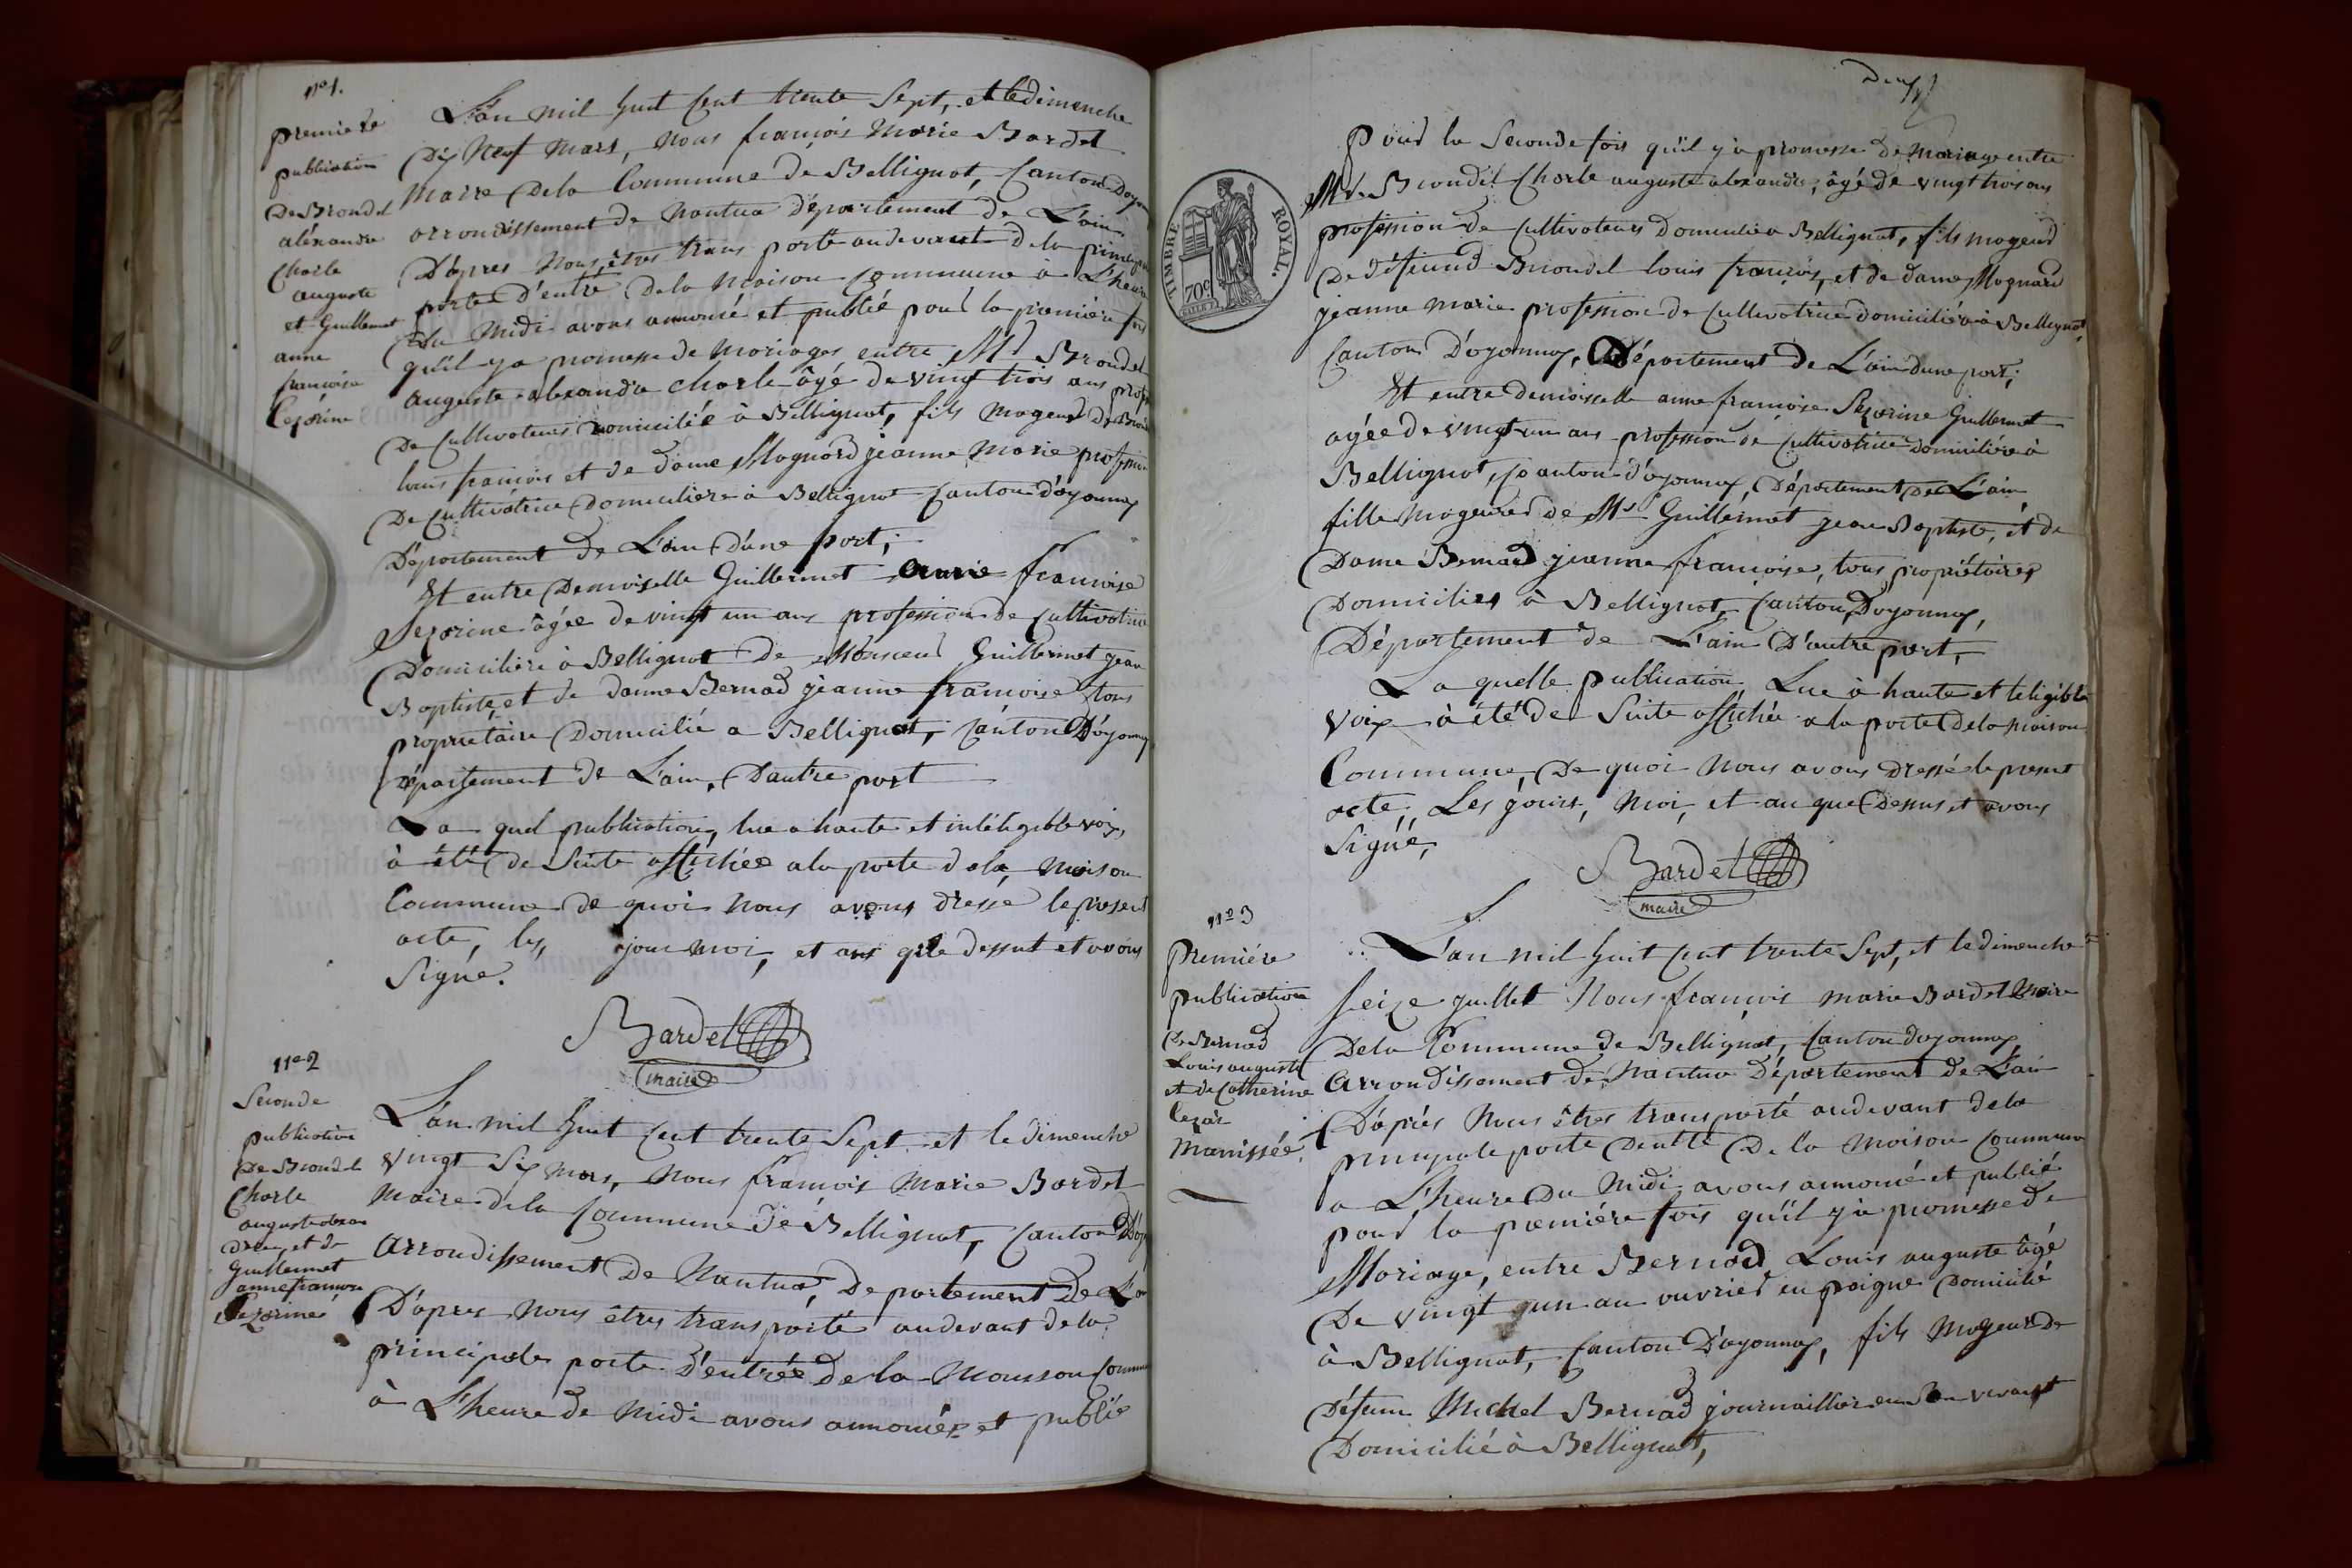 nº1.
premiere
publication
De Brondel
aléxandre
Charle
auguste
et Guillermet
anne
francoise
Cezarine
L'an mil huit Cent trente Sept, et le dimenche
Dix Neuf Mars, nous françois Marie Bardet
Maire Dela Commune de Bellignat, Canton Doyon
arrondissement de Nantua département de L'ain
D'apres Nous êtres trans porté audevant dela principale
porte d'entré dela Maison Commune à L'heure
Du Midi avons annoncé et publié pour la première fois
qu'il ya promesse de Mariages entre Mr Brondel
auguste alexandre charle âgé de vingt trois ans prof
De Cultivateurs Domicilié à Bellignat, fils Mageur de Bron
louis francois et de dame Magnard jeanne Marie profession
De Cultivatrice Domicilière à Bellignat Canton d'oyonnax
Département de L'ain D'une part;
Et entre Demoiselle Guillermet Annie francoise
Sezarine âgée de vingt un ans profession de Cultivatrice
Domicilière à Bellignat De Monsieur Guillermet jean
Baptiste, et de danne Bernad jeanne francoise tous
propriétaire Domicilié a Bellignat, Canton D'oyonnax
département de L'ain, D'autre part
La quel publication, lue a haute et intélegible voix,
à été de Suite affichée ala porte dela Maison
Commune de quoi nous avons dressé le present
acte, les, jour moi, et ans que dessut et avons
Signé.
Bardet
maire
nº 2
Seconde
publication
De Brondel
Charle
auguste alexan
dre, et de
Guillermet
anne francoise
Sezarine
L'an mil huit Cent trente Sept et le dimenche
vingt Six mars, nous françois Marie Bardet
Maire dela Commune de Bellignat, Canton D'oy
Arrondissement De Nantua, Departement De L'a
D'apres Nous êtres transporté audevant dela
principale porte D'entrée De la Maison Commu
à L'heure de Midi avons annoncées et publié
Deux
TIMBRE ROYAL.
70c
Pour la Seconde fois qu'il y à promesse De Mariage entre
Mr. Brondel Charle auguste alexandre, âgé de vingt trois ans
profession De Cultivateurs Domicilié a Bellignat, fils mageur
De défeund Brondel louis françois, et de dame Magnard
jeanne marie profession de Cultivatrice domicilière à Bellignat,
Canton D'oyonnax, Département de L'ain dune part;
Et entre demoisselle anne francoise Sezarine Guillermet
agée de vingt un ans profession de Cultivatrice domicilière à
Bellignat, canton d'oyonnax, Département De L'ain
fille Mageure de Mr Guillermet jean Baptiste, et de
Dame Bernad jeanne francoise, tous propriétaires
Domiciliés à Bellignat, Canton, Doyonnax,
Département de L'ain D'autre part,
La quelle publication Lue à haute et teligible
voix à été de Suite affichée a la porte Dela Maison
Commune, De quoi Nous avons dressé le present
acte, Les jours, Moi, et an que Dessus et avons
Signé,
Bardet
maire
nº 3
Première
publication
De Bernad
Louis auguste
et de Catherine
Cezar
Manissée
L'an mil huit Cent trente Sept, et le dimenche
Seize juillet Nous françois marie Bardet Maire
Dela Commune de Bellignat, Canton Doyonnax
Arrondissement de Nantua Département de L'ain
D'après Nous êtres transporté audevant dela
principale porte Dentré De la Maison Commune
a L'heure Du Midi avons annoncé et publié
pour la première fois qu'il y à promesse De
Mariage, entre Bernad Louis auguste âgé
De vingt un an ouvrier en peigne Domicilié
à Bellignat, Canton D'oyonnax, fils Mageur De
Défeun Michel Bernad journaillier en Son vivant
Domicilié à Bellignat,